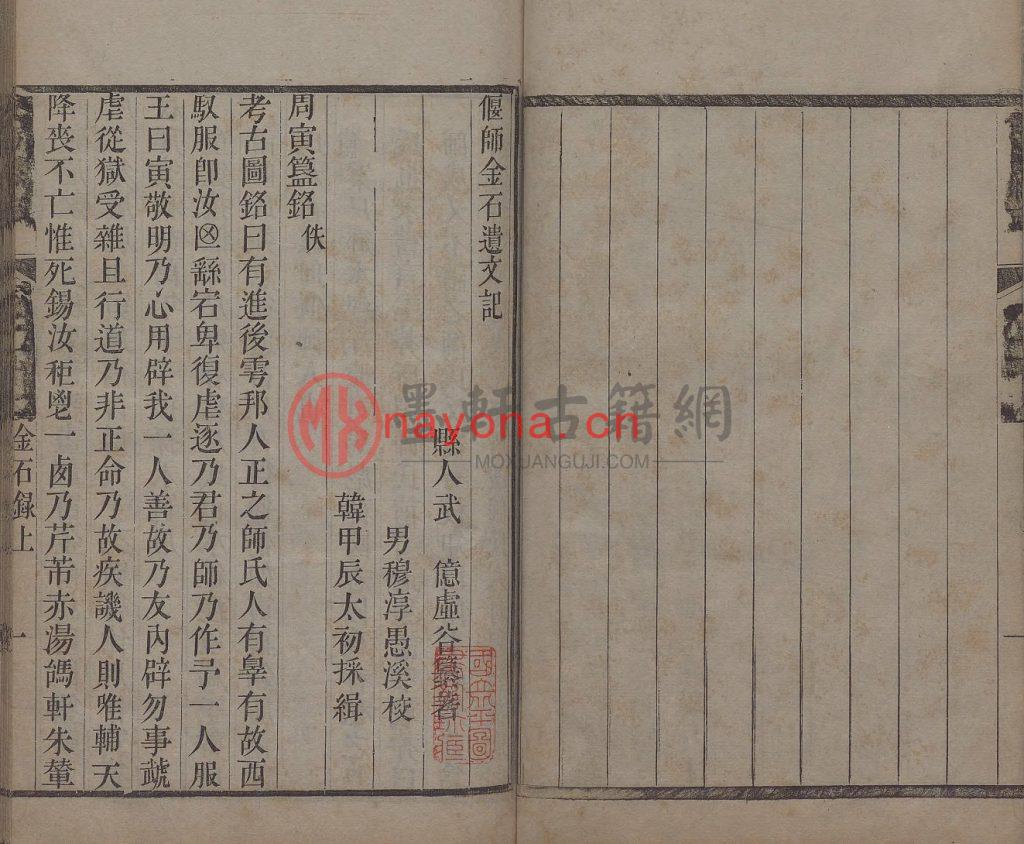 偃師金石遺文記
縣人武　億虛谷纂著
男穆淳愚溪校
韓甲辰太初採緝
周寅簋銘 佚
考古圖銘曰有進後雩邦人正之師氏人有辠有故西
馭服卽汝 繇宕卑復虐逐乃君乃師乃作予一人服
王曰寅敬明乃心用辟我一人善故乃友內辟勿事虣
虐從獄受雜且行道乃非正命乃故疾譏人則唯輔天
降喪不亡惟死錫汝秬鬯一卣乃芹芾赤湯鎷軒朱䡝
金石録上
一
墨軒古籍網
MX
nayona.cn
MOXUANGUJI.COM